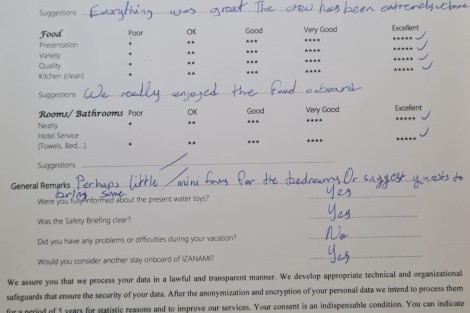 Suggestions Everything was great The crew has been extremely
Food Poor OK Good Very Good Excellent
Presentation * ** *** **** *****
Variety * ** *** **** *****
Quality * ** *** **** *****
Kitchen (clean) * ** *** **** *****
Suggestions We really enjoyed the food onboard
Rooms/ Bathrooms Poor OK Good Very Good Excellent
Neatly * ** *** **** *****
Hotel Service
(Towels, Bed,..) * ** *** **** *****
Suggestions
General Remarks Perhaps little mini fans for the bedrooms Or suggest guests to
bring some
Were you fully informed about the present water toys? Yes
Was the Safety Briefing clear? Yes
Did you have any problems or difficulties during your vacation? No
Would you consider another stay onboard of IZANAMI? Yes
We assure you that we process your data in a lawful and transparent manner. We develop appropriate technical and organizational
safeguards that ensure the security of your data. After the anonymization and encryption of your personal data we intend to process them
for a period of 5 years for statistic reasons and to improve our services. Your consent is an indispensable condition. You can indicate